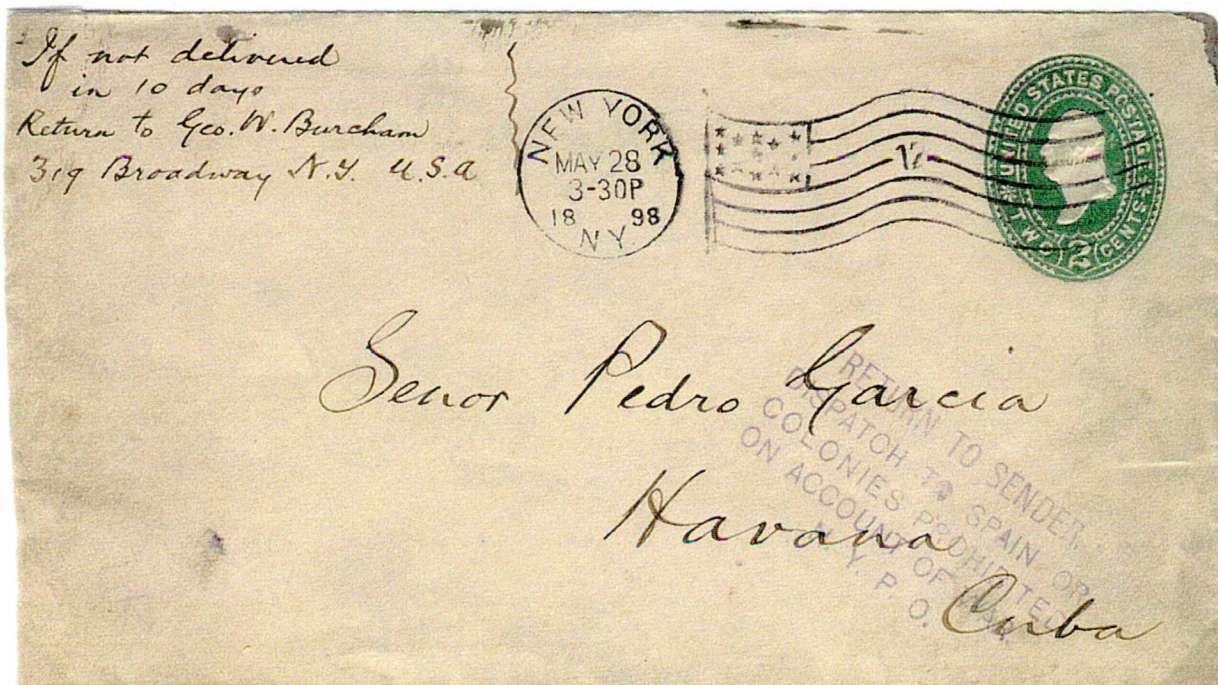 If not delivered
in 10 days
Return to Geo. W. Burcham
319 Broadway N.Y. U.S.A
NEW YORK
MAY 28
3-30P
18 98
NY
12
UNITED STATES POSTAGE
TWO 2 CENTS
Senor Pedro Garcia
Havana
Cuba
RETURN TO SENDER,
DISPATCH TO SPAIN OR
COLONIES PROHIBITED
ON ACCOUNT OF WAR.
N. Y. P. O.